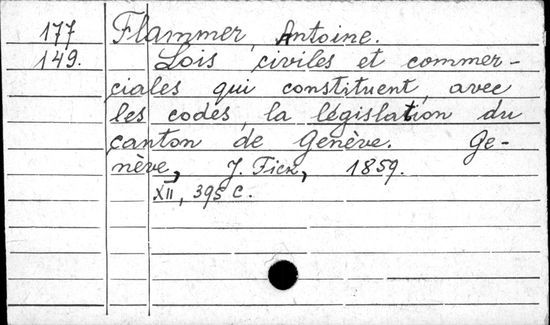 177 Flammer, Antoine.
149. Lois civiles et commer-
ciales qui constituent, avec
les codes, la législation du
canton de Genève. Ge-
nève, J. Fick, 1859.
XII, 395 c.